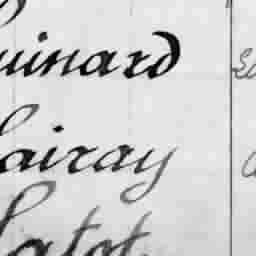 uinard
airay
atot